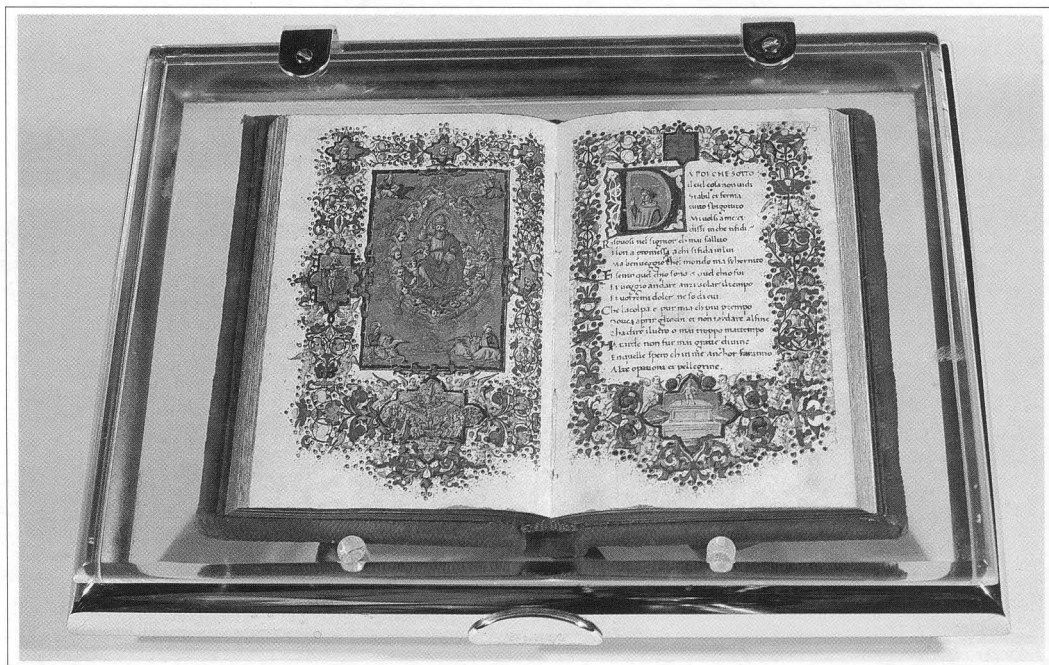 DA POI CHE SOTTO
il ciel cosa non vidi
stabil et ferma
tutto sbigotito
Mi volsi a me et
dissi in che ti fidi
Rispuosi nel signor ch mai fallito
Non a promessa a chi si fida in lui
Ma ben veggio che mondo ma schernito
Et sento quel chio sono et quel chio fui
Et veggio andare anzi volar il tempo
Et voremi doler ne so di cui
Che la colpa e pur mia ch piu p tempo
aprir gliocchi et non tardare al fine
cha dire il vero o mai troppo mattempo
Ma tarde non fur mai gratie divine
En quelle spero ch in me anchor faranno
Alte operationi et pellegrine